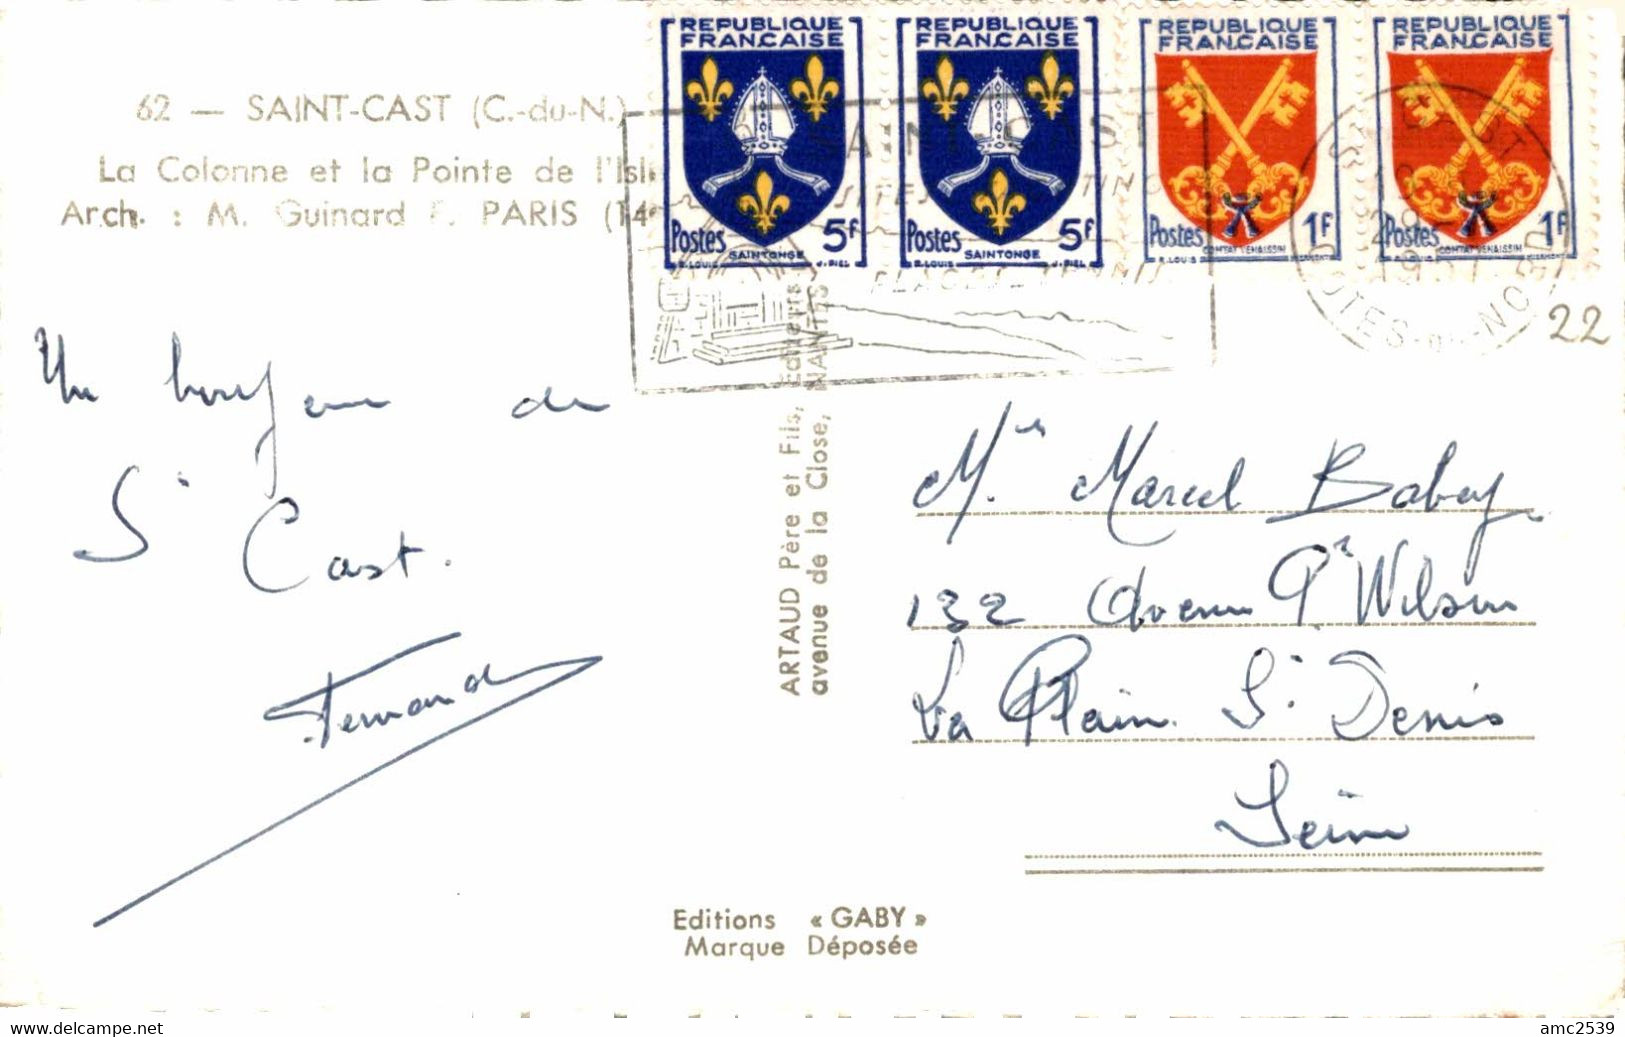 62 — SAINT-CAST (C.-du-N.)
La Colonne et la Pointe de l'Isl
Arch. : M. Guinard PARIS (14
REPUBLIQUE
FRANÇAISE
Postes 5F
SAINTONGE
R. LOUIS J. PIEL
REPUBLIQUE
FRANÇAISE
Postes 5F
SAINTONGE
R. LOUIS J. PIEL
REPUBLIQUE
FRANÇAISE
Postes 1F
COMTAT VENAISSIN
R. LOUIS MIERMONT
REPUBLIQUE
FRANÇAISE
Postes 1F
COMTAT VENAISSIN
R. LOUIS MIERMONT
SAINT-CAST
SITES
CAST
COTES-du-NORD
22
Un bonjour de
St Cast.
Fernand
ARTAUD Père et Fils, Editeurs
avenue de la Close, NANTES
Mr Marcel Babey
132 Avenue Pt Wilson
La Plaine St Denis
Seine
Editions « GABY »
Marque Déposée
www.delcampe.net
amc2539